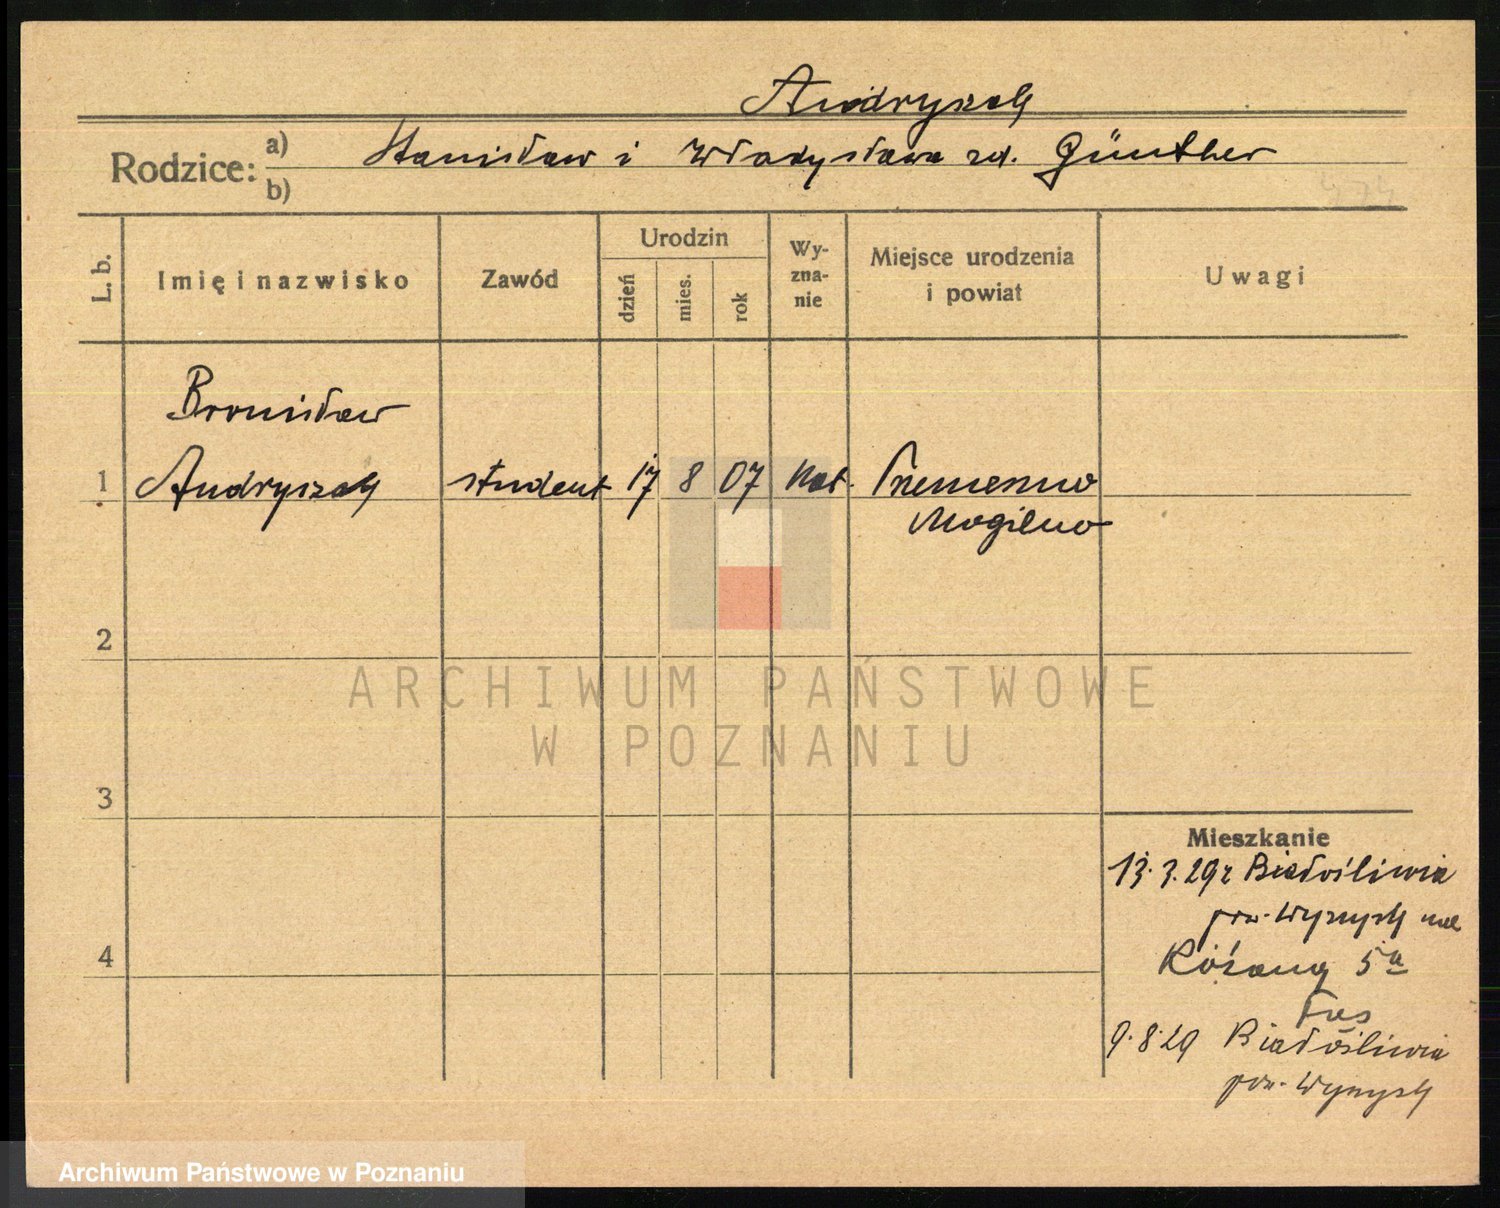 Andryszak
Rodzice: a) Stanisław i Władysława zd. Günther
b)
L. b.
Imię i nazwisko
Zawód
Urodzin
dzień
mies.
rok
Wy-
zna-
nie
Miejsce urodzenia
i powiat
Uwagi
Bronisław
1 Andryszak student 17 8 07 kat. Trzemeszno
Mogilno
2
ARCHIWUM PAŃSTWOWE
W POZNANIU
3
Mieszkanie
13.3.29r Białośliwia
pow. Wyrzysk
4
Różana 5a
9.8.29 Białośliwia
pow. Wyrzysk
Archiwum Państwowe w Poznaniu